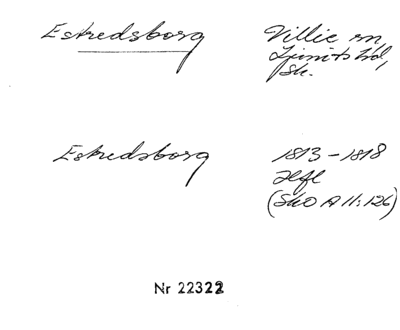 Estredsborg Villie sn
Ljunits hd,
Sk.
Estredsborg 1813-1818
Hfl
(SkO A 11:126)
Nr 22322